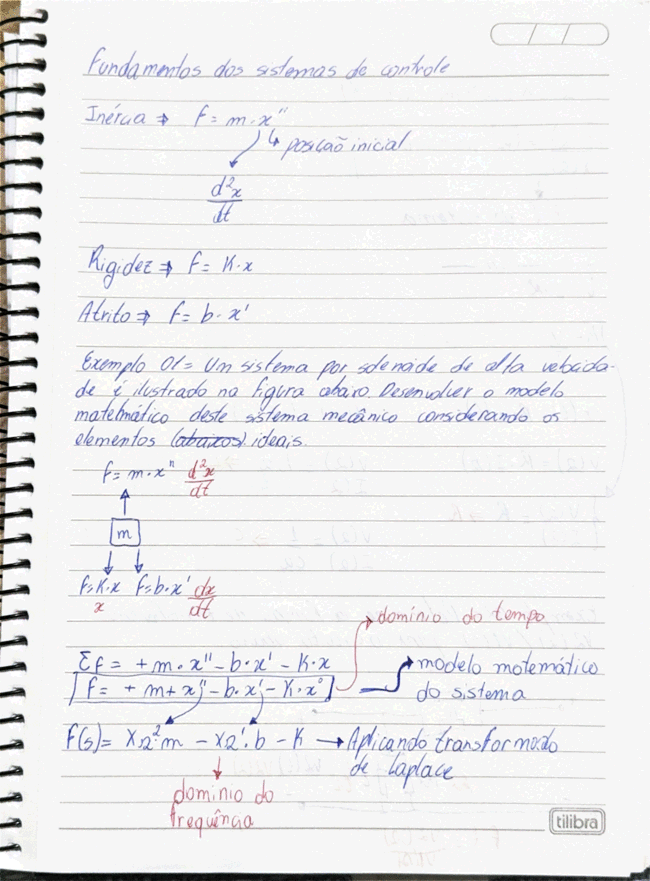 Fundamentos dos sistemas de controle
Inércia ⇒ f = m·x"
↳ posição inicial
d²x
dt
Rigidez ⇒ f = K·x
Atrito ⇒ f = b·x'
Exemplo 01 = Um sistema por solenoide de alta velocida-
de é ilustrado na figura abaixo. Desenvolver o modelo
matemático deste sistema mecânico considerando os
elementos (abaixos) ideais.
f = m·x" d²x
dt
m
f=K·x f=b·x' dx
x dt
domínio do tempo
Σf = +m·x" - b·x' - K·x
modelo motemático
f = +m+x" - b·x' - K·x°
do sistema
F(s) = X·s²·m - X·s'·b - K → Aplicando transformado
de Laplace
domínio do
frequência
tilibra